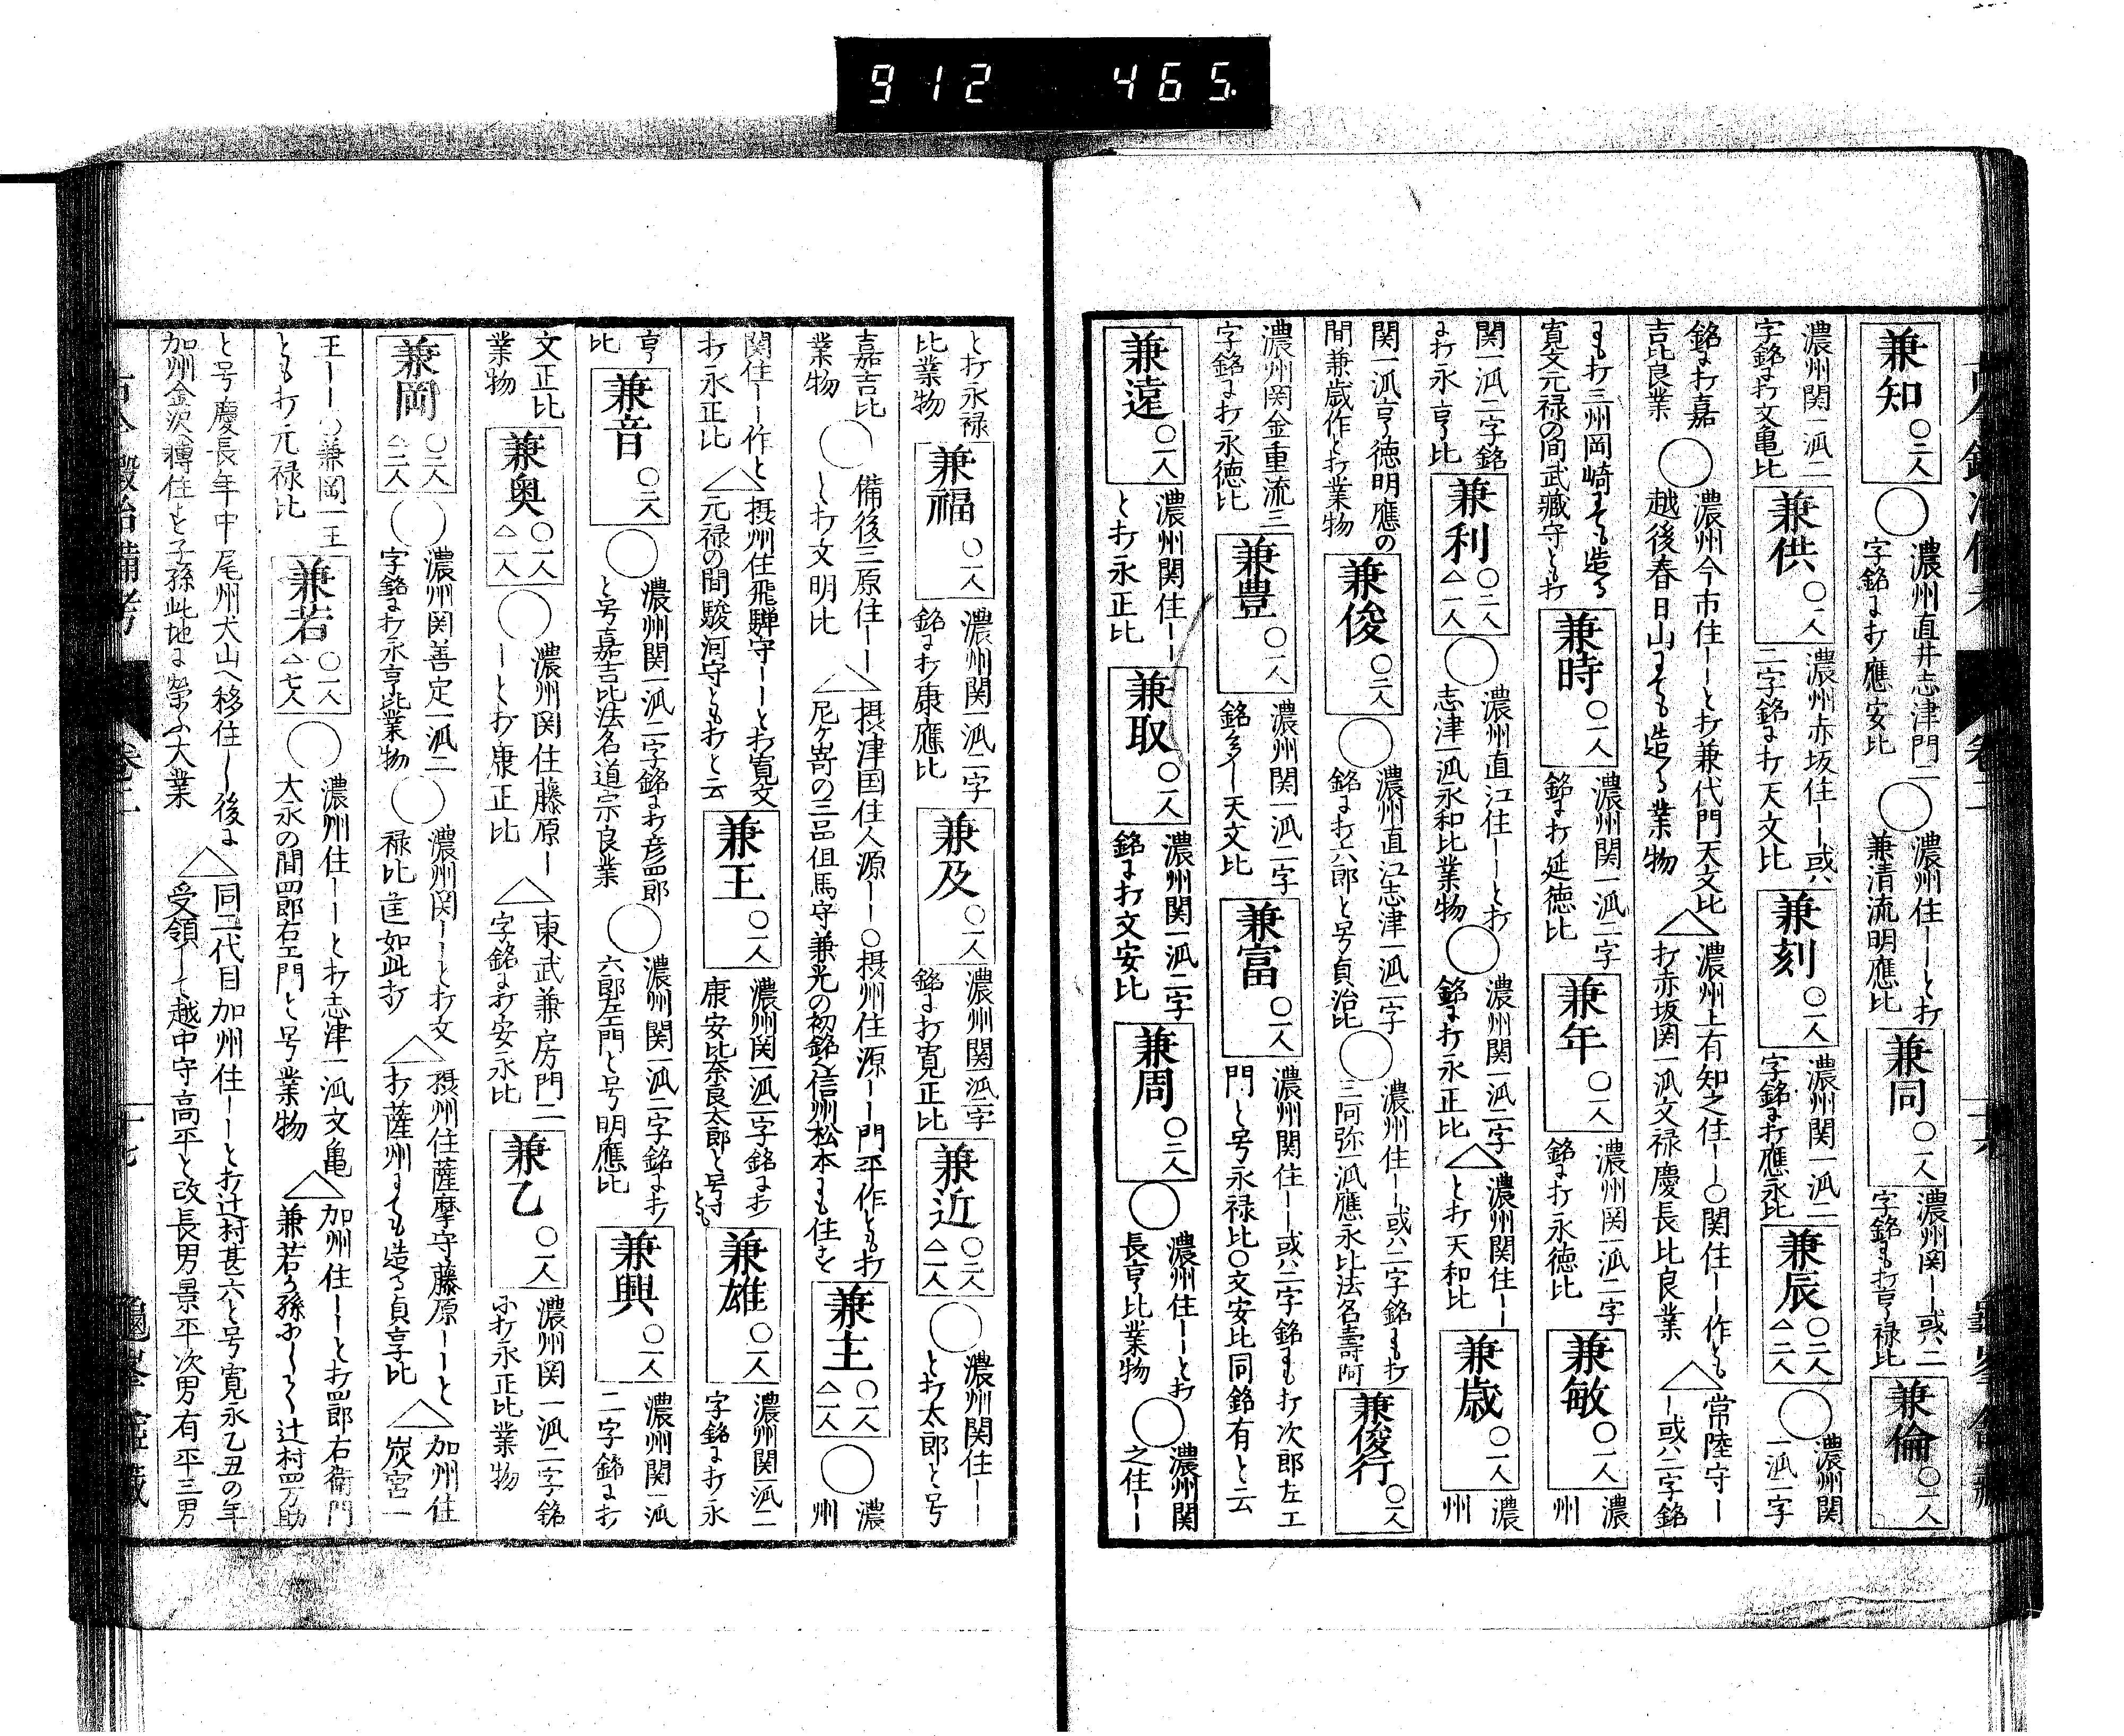 912 465.
兼知 〇二人 〇濃州直井志津門二字銘に打應安比 〇濃州住ーーと打兼清流明應比 兼同 〇一人 濃州関ーー或ハ二字銘も打享禄比 兼倫 〇一人
濃州関一派二字銘に打文亀比 兼供 〇一人 濃州赤坂住ーー或ハ二字銘に打天文比 兼刻 〇一人 濃州関一派二字銘に打應永比 兼辰 〇二人 △二人 〇濃州関一派二字
銘に打嘉吉比良業 〇濃州今市住ーーと打兼代門天文比越後春日山にても造る業物 △濃州上有知之住ーー〇関住ーー作とも打赤坂関一派文禄慶長比良業 △常陸守ーー或ハ二字銘
にも打三州岡崎にても造る寛文元禄の間武藏守とも打 兼時 〇一人 濃州関一派二字銘に打延徳比 兼年 〇一人 濃州関一派二字銘に打永徳比 兼敏 〇一人 濃州
関一派二字銘に打永亨比 兼利 〇二人 △一人 〇濃州直江住ーーと打志津一派永和比業物 〇濃州関一派二字銘に打永正比 △濃州関住ーーと打天和比 兼歳 〇一人 濃州
関一派亨徳明應の間兼歳作と打業物 兼俊 〇三人 〇濃州直江志津一派二字銘に打六郎と号貞治比 〇濃州住ーー或ハ二字銘も打三阿弥一派應永比法名壽阿 兼俊行 〇一人
濃州関金重流三字銘に打永徳比 兼豊 〇一人 濃州関一派二字銘多ー天文比 兼富 〇一人 濃州関住ーー或ハ二字銘にも打次郎左エ門と号永禄比〇文安比同銘有と云
兼遠 〇一人 濃州関住ーーと打永正比 兼取 〇一人 濃州関一派二字銘に打文安比 兼周 〇二人 〇濃州住ーーと打長亨比業物 〇濃州関之住ーー
と打永禄比業物 兼福 〇一人 濃州関一派二字銘に打康應比 兼及 〇一人 濃州関一派二字銘に打寛正比 兼近 〇二人 △一人 〇濃州関住ーーと打太郎と号
嘉吉比業物 〇備後三原住ーーと打文明比 △摂津国住人源ーー〇摂州住源ーー門平作とも打尼ヶ嵜の三品但馬守兼光の初銘く信州松本にも住を 兼主 〇一人 △一人 〇濃州
関住ーー作と打永正比 △摂州住飛騨守ーーと打寛文元禄の間駿河守とも打と云 兼王 〇一人 濃州関一派二字銘に打康安比奈良太郎と号す 兼雄 〇一人 濃州関一派二字銘に打永
亨比 兼音 〇二人 〇濃州関一派二字銘に打彦四郎と号嘉吉比法名道宗良業 〇濃州関一派二字銘に打六郎左エ門と号明應比 兼興 〇一人 濃州関一派二字銘に打
文正比業物 兼奥 〇一人 △一人 〇濃州関住藤原ーーと打康正比 △東武兼房門二字銘に打安永比 兼乙 〇一人 濃州関一派二字銘に打永正比業物
兼岡 〇二人 △二人 〇濃州関善定一派二字銘に打永亨比業物 〇濃州関ーーと打文禄比崔如此打 △摂州住薩摩守藤原ーーと打薩州にても造る貞享比 △加州住炭宮一
王ーー〇兼岡一王とも打元禄比 兼若 〇一人 △七人 〇濃州住ーーと打志津一派文亀大永の間四郎右エ門と号業物 △加州住ーーと打四郎右衛門兼若の孫辻村四方助
と号慶長年中尾州犬山へ移住ー後に加州金沢へ轉住を子孫此地に榮ふ大業 △同二代目加州住ーーと打辻村甚六と号寛永乙丑の年受領ーて越中守高平と改長男景平次男有平三男
卷二